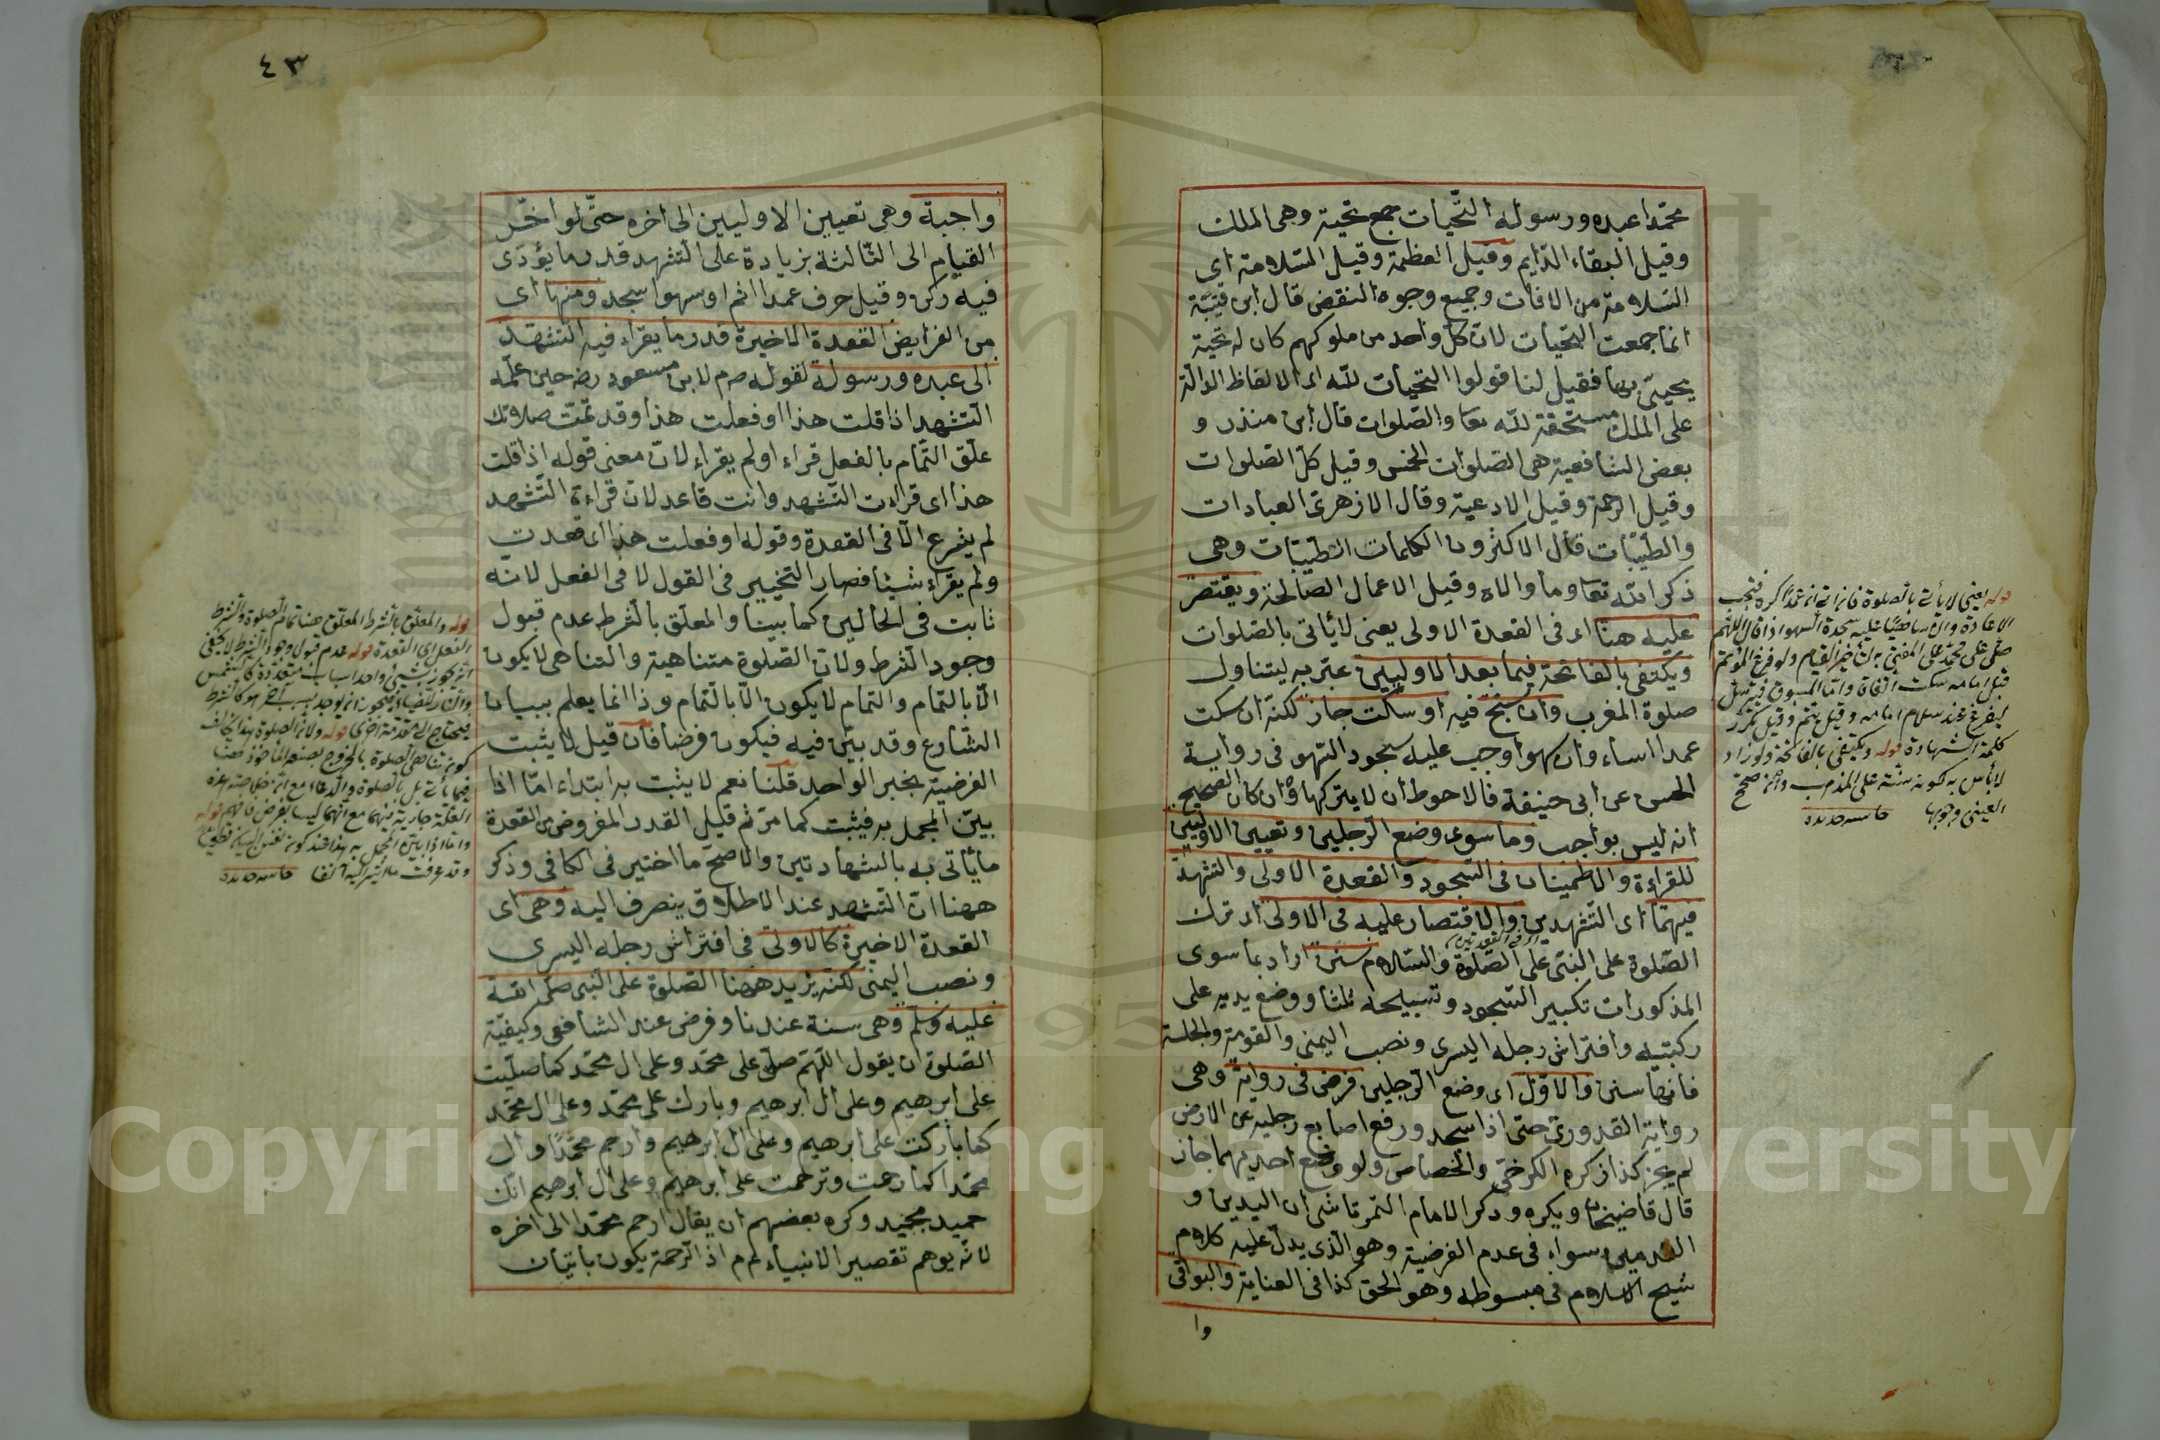 محمدا عبده ورسوله التحيات جمع تحية وهى الملك
وقيل البقاء الدايم وقيل العظمة وقيل السلامة اى
السلامة من الافات وجميع وجوه النقض قال ابن قتيبة
انما جمعت التحيات لان كل واحد من ملوكهم كان له تحية
يحيى بها فقيل لنا قولوا التحيات لله اى الالفاظ الدالة
على الملك مستحقة لله تعا والصلوات قال ابن منذر و
بعض الشافعية هى الصلوات الخمس وقيل كل الصلوات
وقيل الرحمة وقيل الادعية وقال الازهرى العبادات
والطيبات قال الاكثرون الكلمات الطيبات وهى
ذكر الله تعا وما والاه وقيل الاعمال الصالحة ويقتصر
عليه هنا اى فى القعدة الاولى يعنى لا يأتى بالصلوات
ويكتفى بالفاتحة فيما بعد الاوليين عبر به ليتناول
صلوة المغرب وان سبح فيه او سكت جاز لكنه ان سكت
عمدا اساء وان سهوا وجب عليه سجود السهو فى رواية
الحسن عن ابى حنيفة فالاحوط ان لا يتركها وان كان الصحيح
انه ليس بواجب وما سوى وضع الرجلين وتعيين الاوليين
للقراءة والاطمينان فى السجود والقعدة الاولى والتشهد
فيهما اى التشهدين والاقتصار عليه فى الاولى اى ترك
اى فى القعدتين
الصلوة على النبى على الصلوة والسلام سنن اراد بما سوى
المذكورات تكبير السجود وتسبيحه ثلثا ووضع يديه على
ركبتيه وافتراش رجله اليسرى ونصب اليمنى والقومة والجلسة
فانها سنن والاول اى وضع الرجلين فرض فى رواية وهى
رواية القدورى حتى اذا سجد ورفع اصابع رجليه عن الارض
لم يجز كذا ذكره الكرخى والخصاص ولو وضع احديهما جاز
قال قاضيخان ويكره وذكر الامام التمرتاشى ان اليدين و
القدمين سواء فى عدم الفرضية وهو الذى يدل عليه كلام
شيخ الاسلام فى مبسوطه وهو الحق كذا فى العناية والبواقى
وا
قوله يعنى لا يأتى بالصلوة فان اتى انه عمدا كره فتجب
الاعادة وان ساهيا عليه سجدة السهو اذا قال اللهم
صلى على محمد على المفتى به لتأخير القيام ولو فرغ المؤتم
قبل امامه سكت اتفاقا واما المسبوق فيترسل
ليفرغ عند سلام امامه وقيل يتم وقيل يكرر
كلمة الشهادة قوله ويكتفى بالفاتحة ولو زاد
لا بأس به لكونه سنة على المذهب
العينى وجوبها
٤٣
واجبة وهى تعيين الاوليين الى اخره حتى لو اخر
القيام الى الثالثة بزيادة على التشهد قدر ما يؤدى
فيه ركن وقيل حرف عمدا اثم او سهوا سجد ومنها اى
من الفرايض القعدة الاخيرة قدر ما يقراء فيه التشهد
الى عبده ورسوله لقوله ص م لابن مسعود رضه حين علمه
التشهد اذا قلت هذا او فعلت هذا وقد تمت صلاتك
علق التمام بالفعل قراء او لم يقراء لان معنى قوله اذا قلت
هذا اى قراءت التشهد وانت قاعد لان قراءة التشهد
لم يشرع الا فى القعدة وقوله او فعلت هذا اى قعدت
ولم يقراء شيئا فصار التخيير فى القول لا فى الفعل لانه
ثابت فى الحالين كما بينا والمعلق بالشرط عدم قبول
وجود الشرط ولان الصلوة متناهية والتناهى لا يكون
الا بالتمام والتمام لا يكون الا بالتمام وذا انما يعلم ببيان
الشارع وقد بين فيه فيكون فرضا فان قيل لا يثبت
الفرضية بخبر الواحد قلنا نعم لا يثبت به ابتداء اما اذا
بين المجمل به فيثبت كما مر ثم قليل القدر المفروض من القعدة
ما يأتى به بالشهادتين والاصح ما اختير فى الكافى وذكر
ههنا ان التشهد عند الاطلاق ينصرف اليه وهى اى
القعدة الاخيرة كالاولى فى افتراش رجله اليسرى
ونصب اليمنى لكنه يزيد ههنا الصلوة على النبى صلى الله
عليه وسلم وهى سنة عندنا وفرض عند الشافعى وكيفية
الصلوة ان يقول اللهم صلى على محمد وعلى ال محمد كما صليت
على ابرهيم وعلى ال ابرهيم وبارك على محمد وعلى ال محمد
كما باركت على ابرهيم وعلى ال ابرهيم وارحم محمدا وال
محمد كما رحمت وترحمت على ابرهيم وعلى ال ابرهيم انك
حميد مجيد وكره بعضهم ان يقال ارحم محمدا الى اخره
لانه يوهم تقصير الانبياء ع م اذ الرحمة يكون باتيان
قوله والمعلق بالشرط المعلق هنا تمام الصلوة والشرط
الفعل اى القعدة قوله عدم قبول وجود الشرط لا يخفى
Copyright © King Saud University